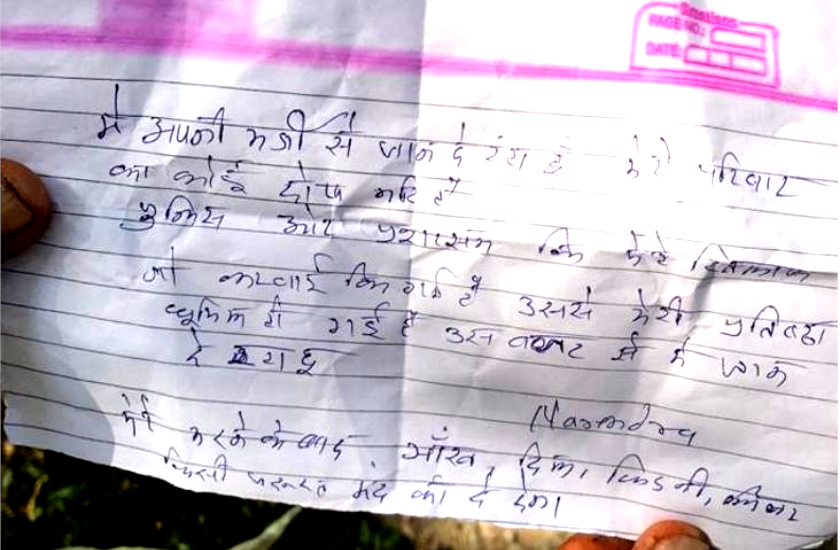 Smashers
PAGE NO.:
DATE:
मै अपनी मर्जी से जान दे रहा हूँ मेरे परिवार
का कोई दोष नहि है
पुलिस और प्रशासन कि मेरे खिलाफ
जो करवाई कि गई है उससे मेरी प्रतिष्ठा
धुमिल हो गई है उस वजह से मै जान
दे रहा हु
Narendra
मेरे मरने के बाद आँख, दिल, किडनी, लीवर
किसी जरूरत मंद को दे देना